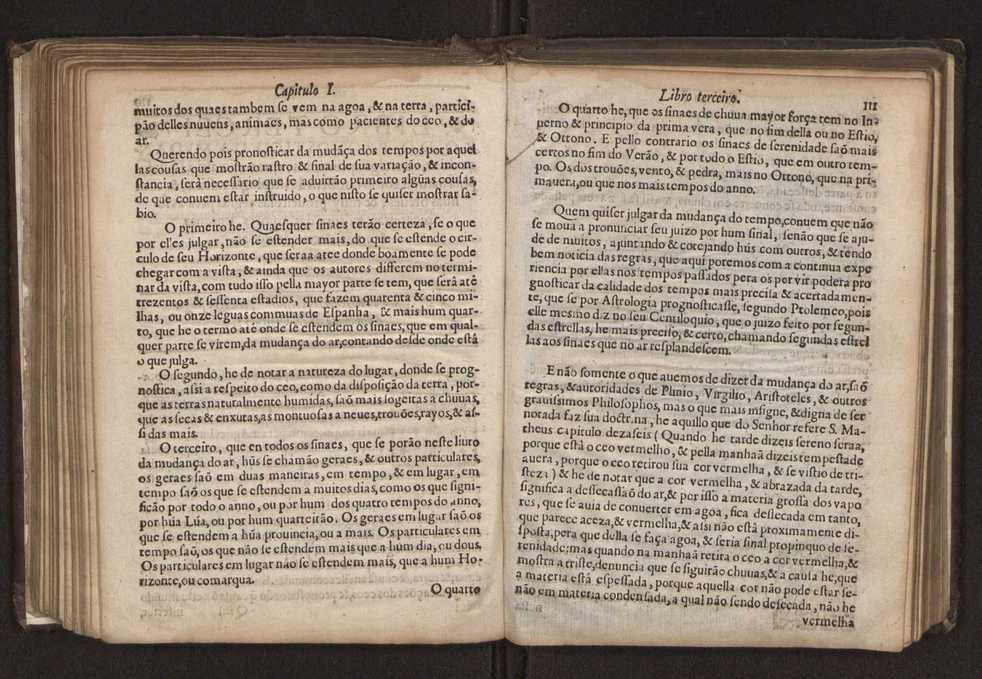 Capitulo I.
muitos dos quaes tambem se vem na agoa, & na terra, partici-
pão delles nuuens, animaes, mas como pacientes do ceo, & do
ar.
Querendo pois pronosticar da mudãça dos tempos por aquel
las cousas que mostrão rastro & sinal de sua variação, & incon-
stancia, será necessario que se aduirtão primeiro algũas cousas,
de que conuem estar instruido, o que nisto se quiser mostrar sa-
bio.
O primeiro he. Quaesquer sinaes terão certeza, se o que
por elles julgar, não se estender mais, do que se estende o cir-
culo de seu Horizonte, que sera a tee donde boamente se pode
chegar com a vista, & ainda que os autores differem no termi-
nar da vista, com tudo isso pella mayor parte se tem, que será atè
trezentos & sessenta estadios, que fazem quarenta & cinco mi-
lhas, ou onze leguas commuas de Espanha, & mais hum quar-
to, que he o termo atè onde se estendem os sinaes, que em qual-
quer parte se virem, da mudança do ar, contando desde onde está
o que julga.
O segundo, he de notar a natureza do lugar, donde se prog-
nostica, assi a respeito do ceo, como da disposição da terra, por-
que as terras naturalmente humidas, saõ mais sogeitas a chuuas,
que as secas & enxutas, as montuosas a neues, trouões, rayos, & as-
si das mais.
O terceiro, que en todos os sinaes, que se porão neste liuro
da mudança do ar, hũs se chamão geraes, & outros particulares,
os geraes saõ em duas maneiras, em tempo, & em lugar, em
tempo saõ os que se estendem a muitos dias, como os que signi-
ficão por todo o anno, ou por hum dos quatro tempos do anno,
por hũa Lúa, ou por hum quarteirão. Os geraes em lugar saõ os
que se estendem a hũa prouincia, ou a mais. Os particulares em
tempo saõ, os que não se estendem mais que a hum dia, ou dous.
Os particulares em lugar não se estendem mais, que a hum Ho-
rizonte, ou comarqua.
O quarto
Libro terceiro.
111
O quarto he, que os sinaes de chuua mayor força tem no In-
uerno & principio da prima vera, que no fim della ou no Estio,
& Ottono. E pello contrario os sinaes de serenidade saõ mais
certos no fim do Verão, & por todo o Estio, que em outro tem-
po. Os dos trouões, vento, & pedra, mais no Ottono, que na pri-
mauera, ou que nos mais tempos do anno.
Quem quiser julgar da mudança do tempo, conuem que não
se moua a pronunciar seu juizo por hum sinal, senão que se aju-
de de muitos, ajuntando & cotejando hũs com outros, & tendo
bem noticia das regras, que aqui poremos com a continua expe
riencia por ellas nos tempos passados pera os per vir podera pro
gnosticar da calidade dos tempos mais precisa & acertadamen-
te, que se por Astrologia prognosticasse, segundo Ptolemeo, pois
elle mesmo diz no seu Centiloquio, que o juizo feito por segun-
das estrellas, he mais preciso, & certo, chamando segundas estrel
las aos sinaes que no ar resplandescem.
E não somente o que auemos de dizer da mudança do ar, saõ
regras, & autoridades de Plinio, Virgilio, Aristoteles, & outros
grauissimos Philosophos, mas o que mais insigne, & digna de ser
notada faz sua doctrina, he aquillo que do Senhor refere S. Ma-
theus capitulo dezaseis (Quando he tarde dizeis sereno seraa,
porque està o ceo vermelho, & pella manhaã dizeis tempestade
auera, porque o ceo retirou sua cor vermelha, & se vistio de tri-
steza) & he de notar que a cor vermelha, & abrazada da tarde,
significa a desseccassaõ do ar, & por isso a materia grossa dos vapo
res, que se auia de conuerter em agoa, fica dessecada em tanto,
que parece aceza, & vermelha, & assi não està proximamente di-
sposta, pera que della se faça agoa, & seria sinal propinquo de se-
renidade: mas quando na manhaã retira o ceo a cor vermelha, &
mostra a triste, denuncia que se siguirão chuuas, & a causa he, que
a materia està espessada, porque aquella cor não pode estar se-
não em materia condensada, a qual não sendo desecada, não he
vermelha